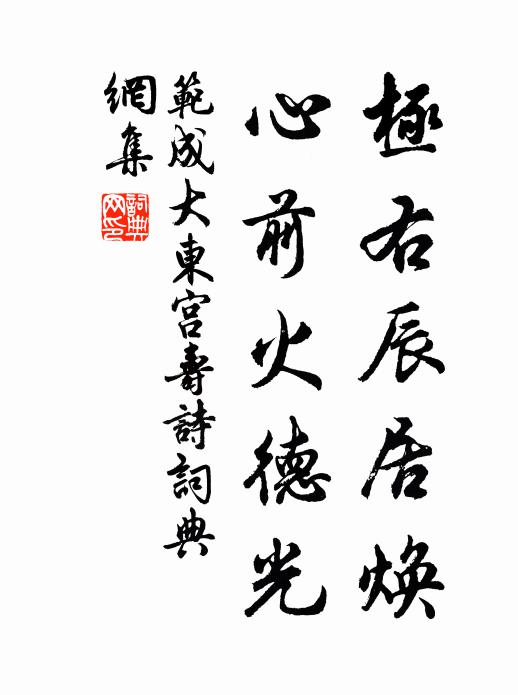 極右辰居焕
心前火德光
範成大東宮壽詩詞典
網集
詞典
网印